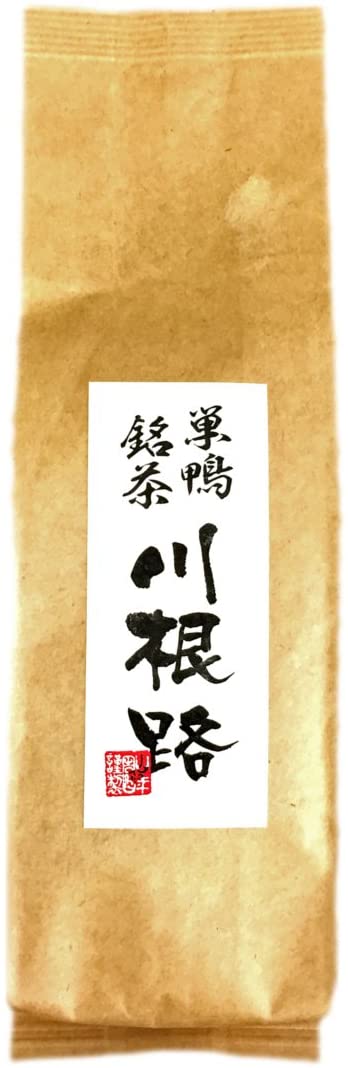 巣鴨
銘茶
川根路